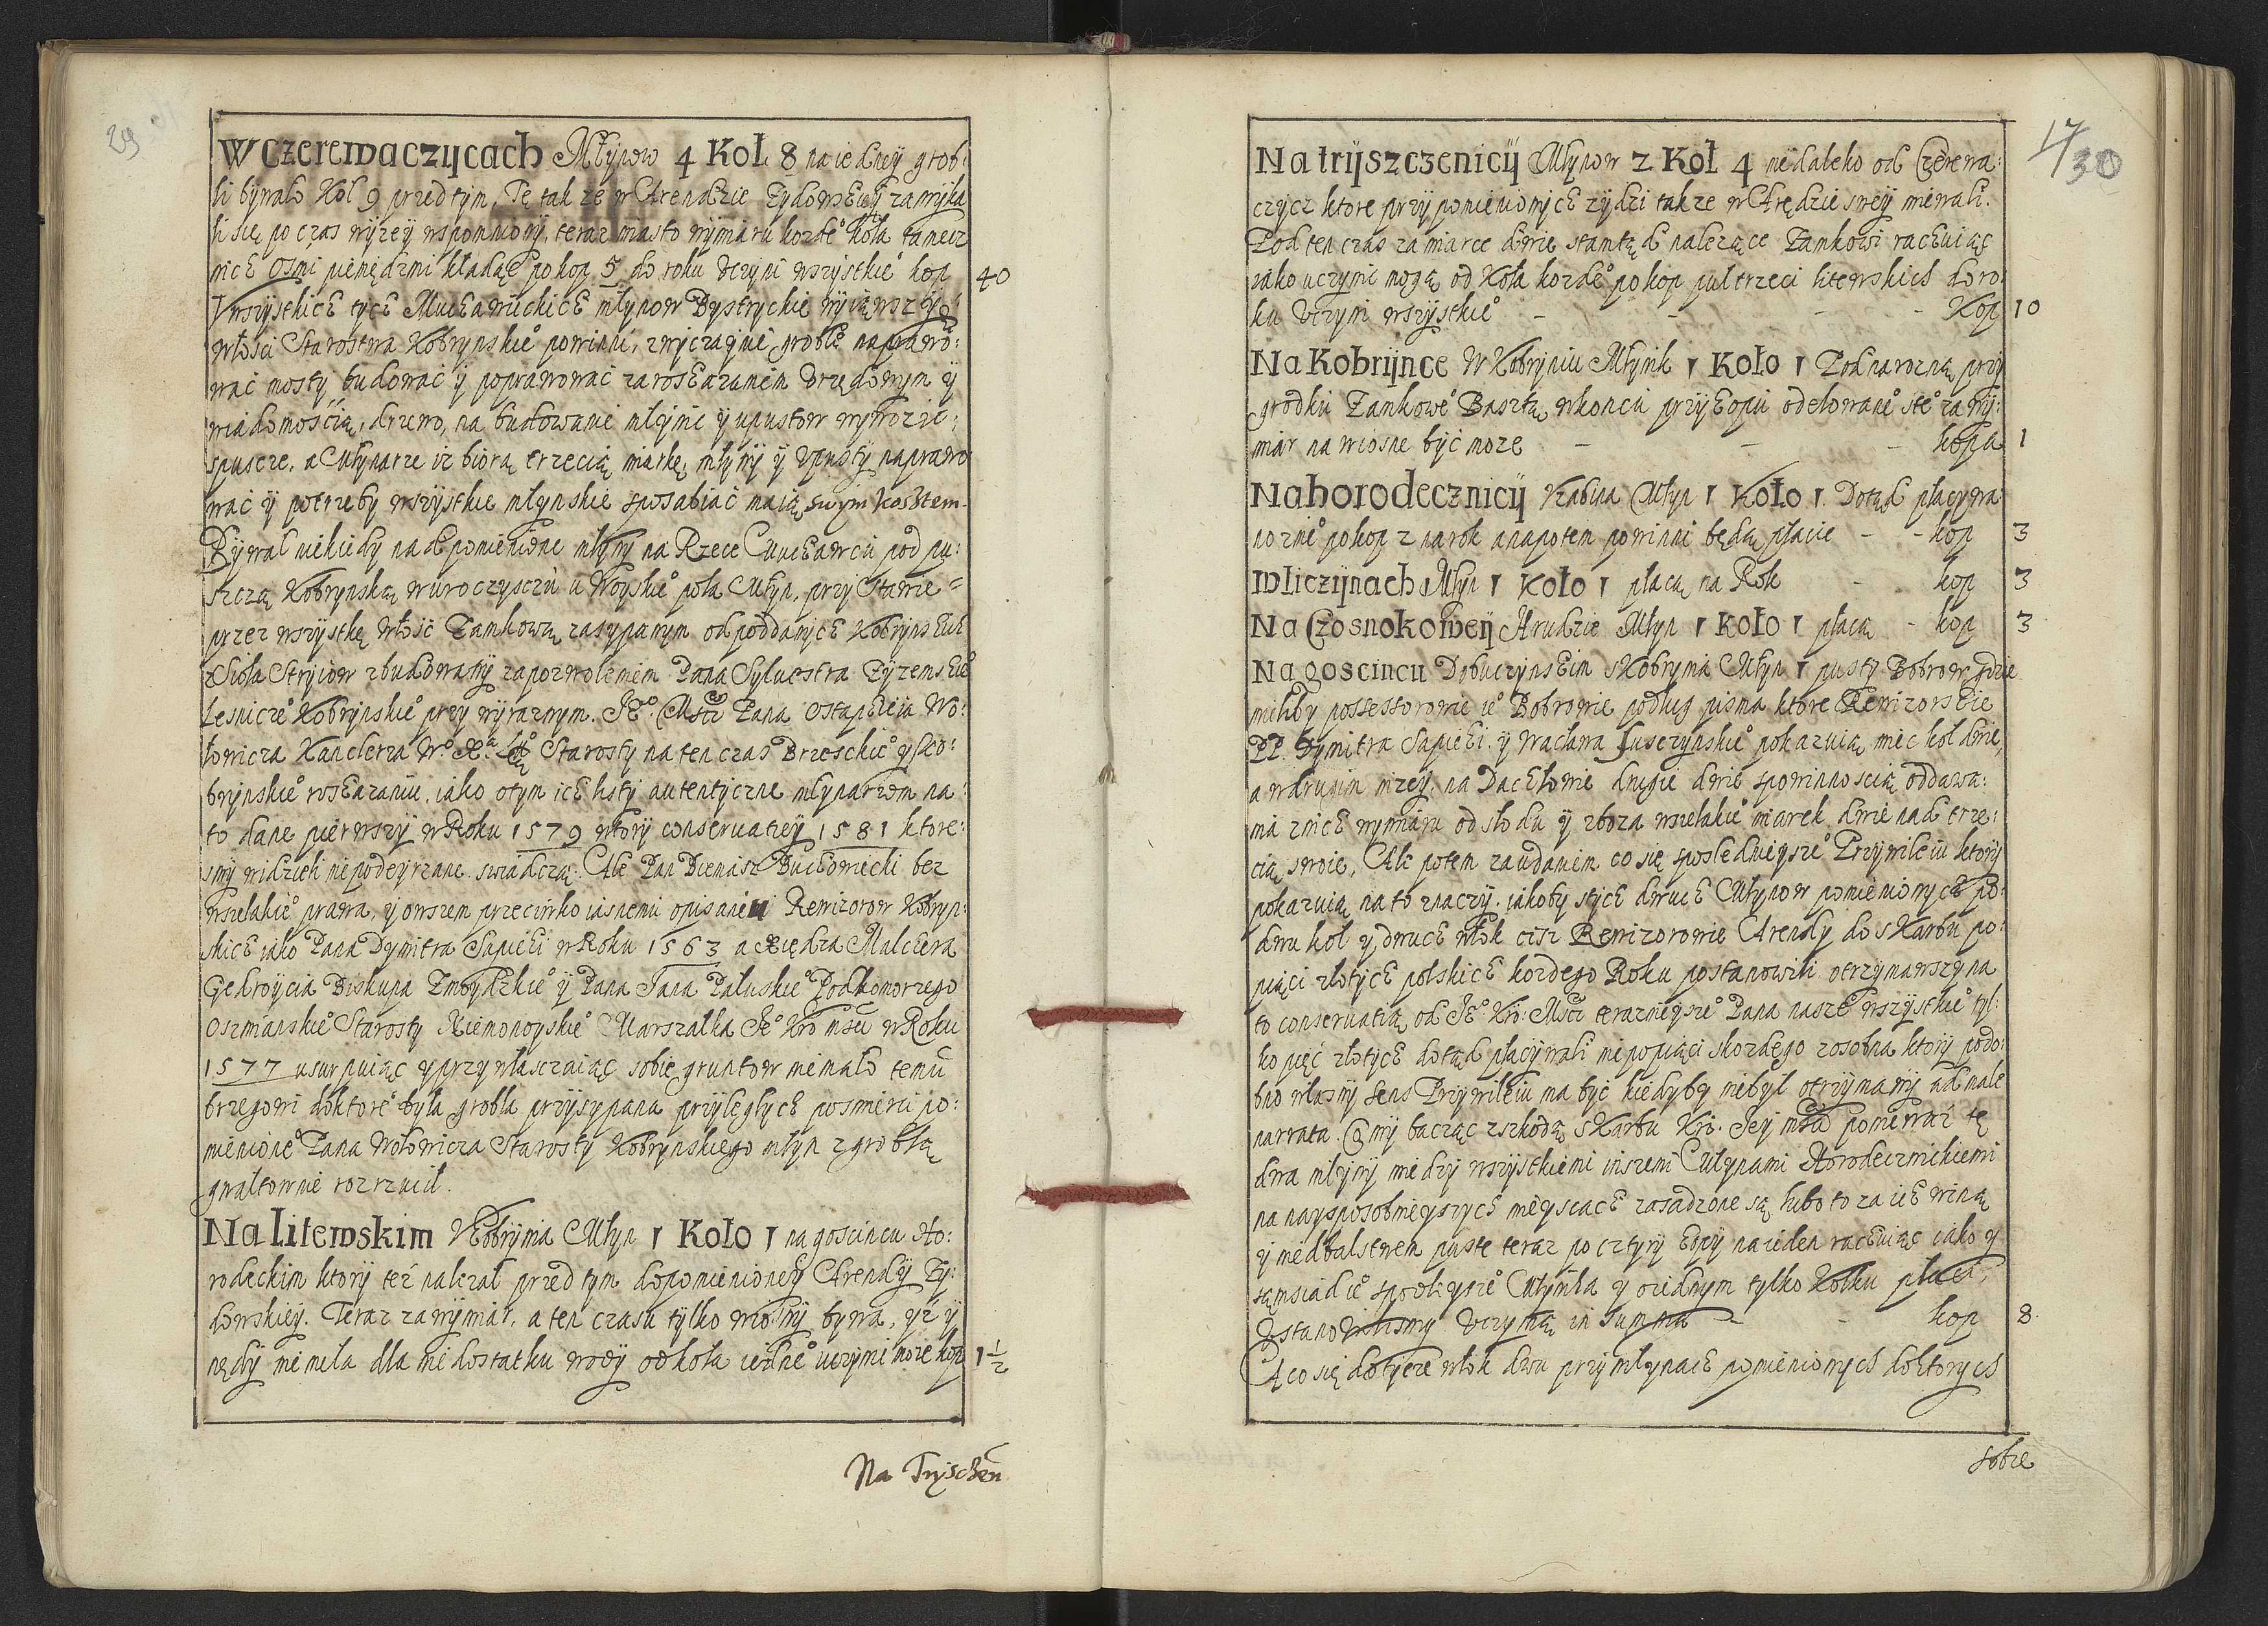 29
W Czerewaczycach Młynow 4 Koł 8 na iedney grob:
li bywało Koł 9 przed tym, Te tak że w Arendzie Żydowskiey zamyka
li się po czas wyżey wspomniony, teraz miasto wymiaru kożde° koła tamecz
nich Ośmi pieniędzmi kładąc po kop 5 do roku uczyni wszystkie° kop 40
U wszystkich tych Muchawieckich młynow Bystryckie wyiąwszy
włości Starostwa Kobrynskie° powinni, zwyczaynie groble naprawo:
wać mosty budować y poprawować za roskazaniem Urzędowym y
wiadomością, drzewo, na budowanie młynic y upustow wywozić:
spuscze, a Młynarze iż biorą trzecią miarkę, młyny y upusty naprawo
wać y potrzeby wszystkie młynskie sposabiać maią swym kosztem.
Bywał niekiedy nad pomienione młyny na Rzece Muchawcu pod pu:
szczą Kobrynską w uroczysczu u Woyskie° pola Młyn, przy Stawie=
przez wszystkę włość Zamkową zasypanym od poddanych Kobrynskich
z Sioła Stryiow zbudowany za pozwoleniem Pana Sylvestra Tyzenskie°
Lesnicze° Kobrynskie° przy wyraznym. Je° Mści Pana Ostaphieia Wo:
łowicza Kanclerza W° X° Lit° Starosty na ten czas Brzeskie° y Ko:
brynskie° roskazaniu, iako o tym ich listy autentyczne młynarzom na
to dane pierwszy w Roku 1579 wtory conservatiey 1581 ktore:
smy widzieli niepodeyrzane swiadczą. Ale Pan Bieniasz Buchowiecki bez
wszelakie° prawa, y owszem przeciwko iasnemu opisaniu Rewizorow Kobryn:
skich iako Pana Dymitra Sapiehi w Roku 1563 a Xiędza Malchera
Gedroycia Biskupa Zmoydzkie° y Pana Jana Pałuskie° Podkomorzego
Oszmianskie° Starosty Niemonoyskie° Marszałka Je° Kro Mści w Roku
1577 usurpuiąc y przywłasczaiąc sobie gruntow niemało temu
brzegowi do ktore° była grobla przysypana przyległych po smierci po:
mienione° Pana Wołowicza Starosty Kobrynskiego młyn z groblą
gwałtownie rozrzucił.
Na Litewskim U Kobrynia Młyn 1 Koło 1 na goscincu Ho:
rodeckim ktory też należał przed tym do pomienioney Arendy Ży:
dowskiey. Teraz za wymiar, a ten czasu tylko wiosny bywa, yż y
nędy niemela dla niedostatku wody od koła iedne° uczyni może kop 1 1/2
Na Tryszczen
17
30
Na tryszczenicy Młynow 2 Koł 4 niedaleko od Czerewa:
czycz ktore przypomienionych żydzi także w Arędzie swey miewali.
Pod ten czas za miarce dwie stamtąd nalezące Zamkowi rachuiąc
iako uczynić mogą od Koła kożde° po kop pultrzeci litewskich do ro:
ku Uczyni wszystkie° - - - - Kop 10
Na Kobrynce W Kobryniu Młynik 1 Koło 1 Pod narozną przy
grodku Zamkowe° Basztą w koncu przykopu odelowane° ste° za wy:
miar na wiosne być może - - - kopa 1
Na horodecznicy Kabina Młyn 1 Koło 1. Dotąd płacywa
no z nie° po kop 2 na rok a napotem powinni będą płacic - - kop 3
w Iliczynach Młyn 1 Koło 1 płacą na Rok - kop 3
Na Czosnokowey Hrudzie Młyn 1 Koło 1 płacą - kop 3
Na goscincu Dobuczynskim z Kobrynia Młyn 1 pusty Bobrow gdzie
mieliby possessorowie ie° Bobrowie podług pisma ktore Rewizorskie
PP. Dymitra Sapiehi y Wacława Juszczynskie° pokazuią miec koł dwie,
a w drugim niżey. na Dachłowie drugie dwie s powinnoscią oddawa:
nia z nich wymiaru od słodu y zboza wszelakie° miarek dwie nad trze:
cią swoie, Ale potem za udaniem co się s poslednieysze° Przywileiu ktory
pokazuią na to znaczy. iakoby s tych dwuch Młynow pomienionych po
dwu koł y dwuch włok ciż Rewizorowie Arendy do skarbu po
piąci złotych polskich kożdego Roku postanowili otrzymawszy na
to conservatią od Je° Kro: Mści teraznieysze° Pana nasze° wszystkie° tyl:
ko pięć złotych dotąd płacywali nie po piąci s kożdego zosobna ktory podo:
bno własny sens Przywileiu ma być kiedyby niebył otrzymany ad male
narrata. Cz my bacząc z szkodą skarbu Kro. Jey mści ponieważ te
dwa młyny między wszystkiemi inszemi Młynami Horodecznickiemi
na naysposobnieyszych mieyscach zasadzone są lubo to za ich winą
y niedbalstwem puste teraz po cztyry kopy na ieden rachuiąc iako y
są Młynika y o iednym tylko Kołku płaci,
Ustanowilismy Uczynią in Summa - - hop 8.
A co się dotycze włok dwu przy młynach pomienionych do ktorych
sobie